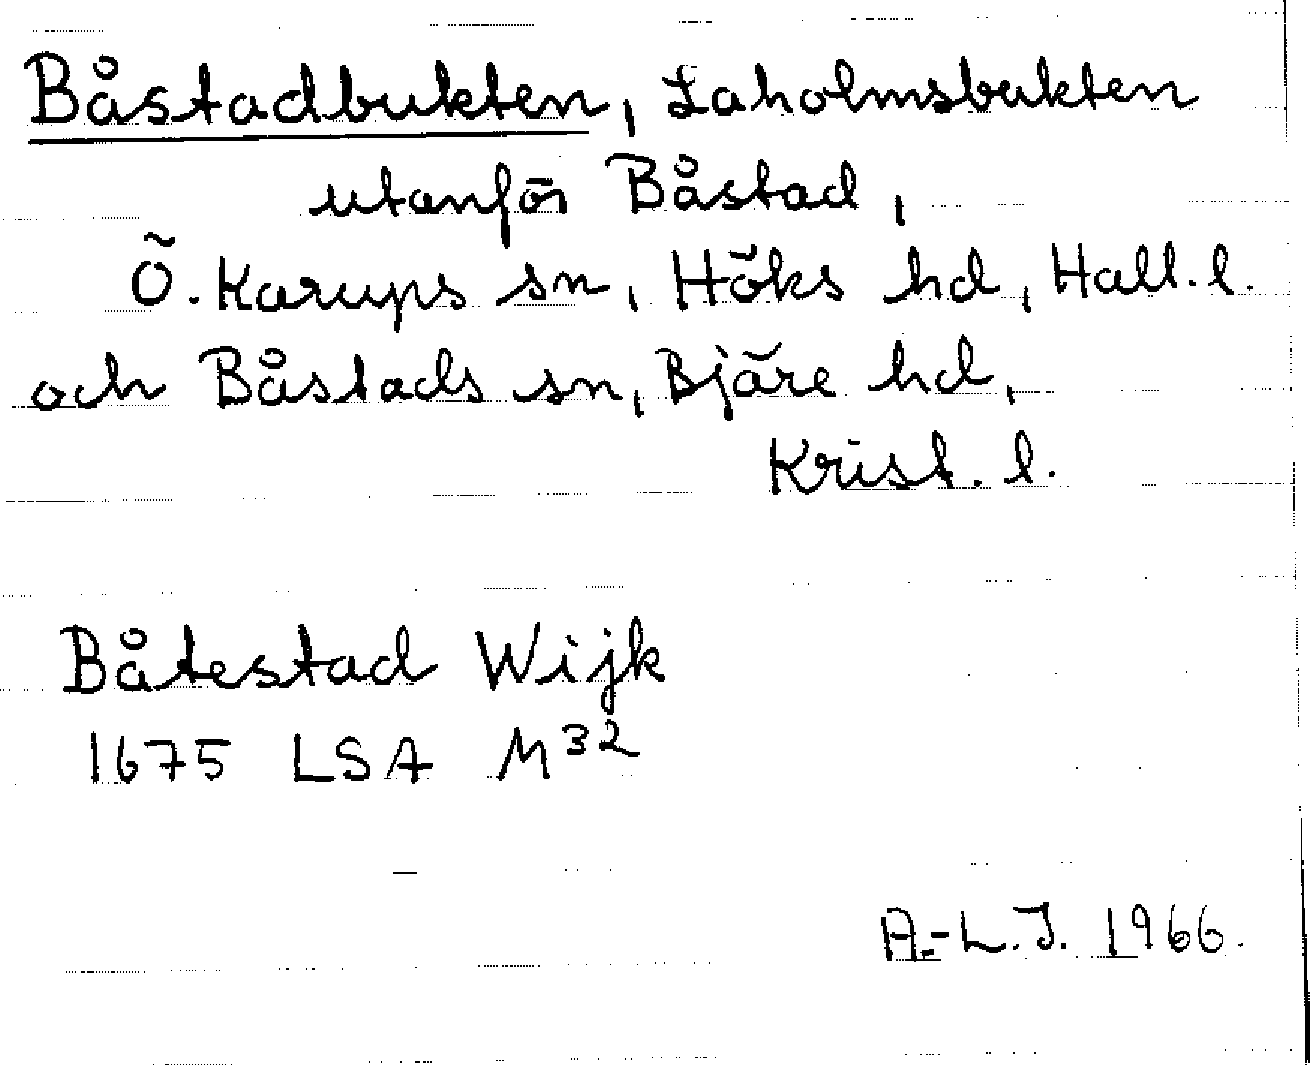 Båstadbukten, Laholmsbukten
utanför Båstad,
Ö. Karups sn, Höks hd, Hall. l.
och Båstads sn, Bjäre hd,
Krist. l.
Båtestad Wijk
1675 LSA M32
A.-L.J. 1966.